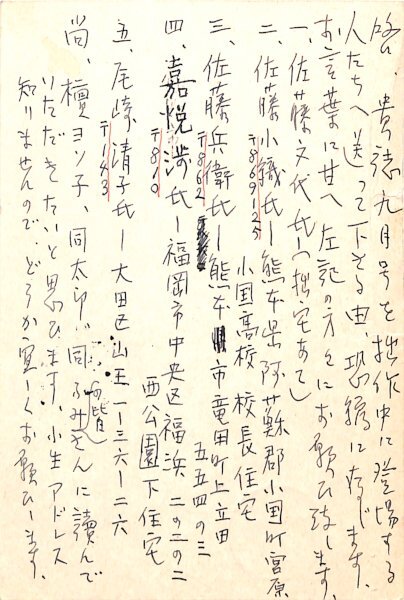 略、貴誌九月号を拙作中に登場する
人たちへ送って下さる由、恐縮に存じます。
お言葉に甘へ左記の方々にお願ひ致します。
一、佐藤文代氏―(拙宅あて)
二、佐藤小織氏―熊本県阿蘇郡小国町宮原
〒869125
小国高校 校長住宅
三、佐藤兵衛氏―熊本市竜田町上立田
〒862
五五四の三
四、嘉悦渉氏―福岡市中央区福浜二の二の二
〒810
西公園下住宅
五、尾崎清子氏―大田区山王一―三六―二六
〒143
尚、檀ヨソ子、同太郎、同ふみさんに讀んで
いただきたいと思ひます、小生アドレス
知りませんので、どうか宜しくお願ひします。